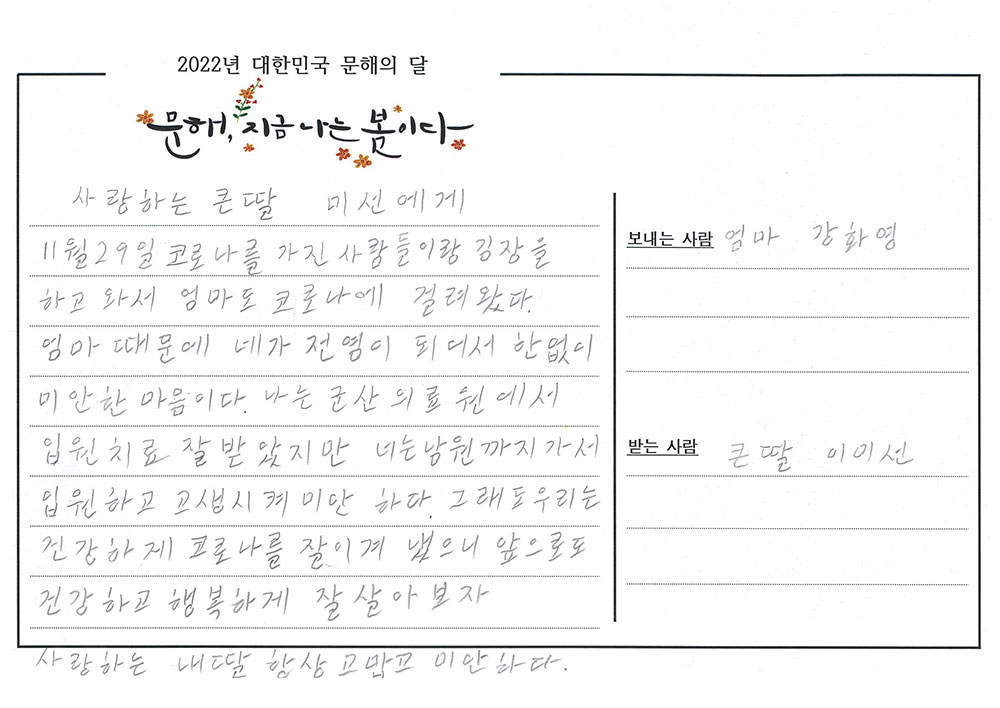 2022년 대한민국 문해의 달
문해, 지금 나는 봄이다
사랑하는 큰딸 미선에게
11월 29일 코로나를 가진 사람들이랑 김장을
하고 와서 엄마도 코로나에 걸려왔다.
엄마 때문에 네가 전염이 되어서 한없이
미안한 마음이다. 나는 군산의료원에서
입원치료 잘받았지만 너는남원까지가서
입원하고 고생시켜미안 하다. 그래도우리는
건강하게 코로나를 잘이겨 냈으니 앞으로도
건강하고 행복하게 잘 살아보자
사랑하는 내딸 항상고맙고 미안하다.
보내는 사람 엄마 강화영
받는 사람 큰딸 이미선